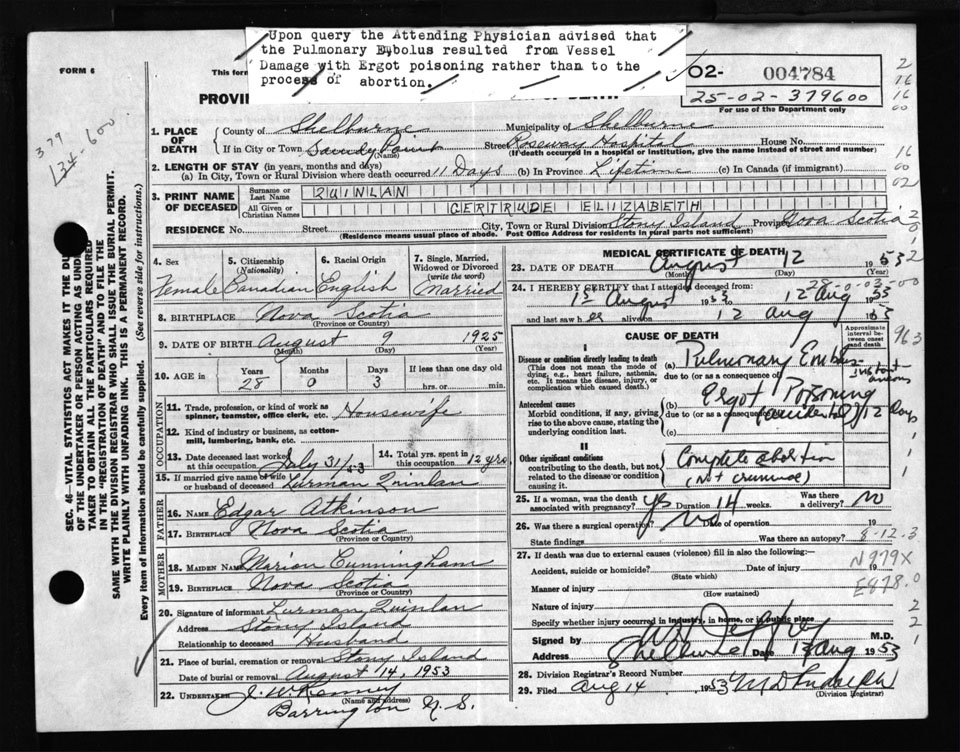 Upon query the Attending Physician advised that
the Pulmonary Embolus resulted from Vessel
Damage with Ergot poisoning rather than to the
process of abortion.
FORM 6
This for
PROVIN
OF DEATH
O2- 004784
25-02-379600
For use of the Department only
379
134-600
SEC. 46—VITAL STATISTICS ACT MAKES IT THE DU
OF THE UNDERTAKER OR PERSON ACTING AS UNDER
TAKER TO OBTAIN ALL THE PARTICULARS REQUIRED
IN THE "REGISTRATION OF DEATH" AND TO FILE THE
SAME WITH THE DIVISION REGISTRAR WHO SHALL ISSUE THE BURIAL PERMIT.
WRITE PLAINLY WITH UNFADING INK. THIS IS A PERMANENT RECORD.
Every item of Information should be carefully supplied. (See reverse side for instructions.)
1. PLACE OF DEATH
County of Shelburne Municipality of Shelburne
If in City or Town Sandy Point (Name) Street Roseway Hospital House No.
(If death occurred in a hospital or institution, give the name instead of street and number)
2. LENGTH OF STAY (in years, months and days)
(a) In City, Town or Rural Division where death occurred 11 Days (b) In Province Lifetime (c) In Canada (if immigrant)
3. PRINT NAME OF DECEASED
Surname or Last Name QUINLAN
All Given or Christian Names GERTRUDE ELIZABETH
RESIDENCE No. Street City, Town or Rural Division Stony Island Province Nova Scotia
(Residence means usual place of abode. Post Office Address for residents in rural parts not sufficient)
4. Sex Female
5. Citizenship (Nationality) Canadian
6. Racial Origin English
7. Single, Married, Widowed or Divorced (write the word) Married
8. BIRTHPLACE Nova Scotia
(Province or Country)
9. DATE OF BIRTH August 9 1925
(Month) (Day) (Year)
10. AGE in Years 28 Months 0 Days 3 If less than one day old hrs. or min.
OCCUPATION
11. Trade, profession, or kind of work as spinner, teamster, office clerk, etc. Housewife
12. Kind of industry or business, as cotton-mill, lumbering, bank, etc.
13. Date deceased last worked at this occupation July 31/53
14. Total yrs. spent in this occupation 12 yrs.
15. If married give name of wife or husband of deceased Lurman Quinlan
FATHER
16. NAME Edgar Atkinson
17. BIRTHPLACE Nova Scotia
(Province or Country)
MOTHER
18. MAIDEN NAME Marion Cunningham
19. BIRTHPLACE Nova Scotia
(Province or Country)
20. Signature of informant Lurman Quinlan
Address Stony Island
Relationship to deceased Husband
21. Place of burial, cremation or removal Stony Island
Date of burial or removal August 14, 1953
22. UNDERTAKER J. W. Kenney
(Name and address)
Barrington N.S.
MEDICAL CERTIFICATE OF DEATH
23. DATE OF DEATH August 12 1953
(Month) (Day)
28-0-03-00
24. I HEREBY CERTIFY that I attended deceased from
1st August 1953 to 12 Aug 1953
and last saw her alive on 12 Aug 1953
CAUSE OF DEATH
Approximate interval between onset and death
963
I
Disease or condition directly leading to death
(This does not mean the mode of dying, e.g., heart failure, asthenia, etc. It means the disease, injury, or complication which caused death.)
(a) Pulmonary Embolus
due to (or as a consequence of)
Antecedent causes
Morbid conditions, if any, giving rise to the above cause, stating the underlying condition last.
(b) Ergot Poisoning
due to (or as a consequence of) (accidental) 12 days
(c)
II
Other significant conditions
contributing to the death, but not related to the disease or condition causing it.
Complete abortion
(Not criminal)
25. If a woman, was the death associated with pregnancy? yes Duration 14 weeks. Was there a delivery? No
26. Was there a surgical operation? No Date of operation 19
State findings Was there an autopsy? 8-12-3
27. If death was due to external causes (violence) fill in also the following:—
N979X
Accident, suicide or homicide? Date of injury 19
(State which)
E878.0
Manner of injury
(How sustained)
Nature of injury
Specify whether injury occurred in industry, in home, or in public place
Signed by M.D.
Address Shelburne Date 13 Aug 1953
28. Division Registrar's Record Number
29. Filed Aug 14 1953
(Division Registrar)